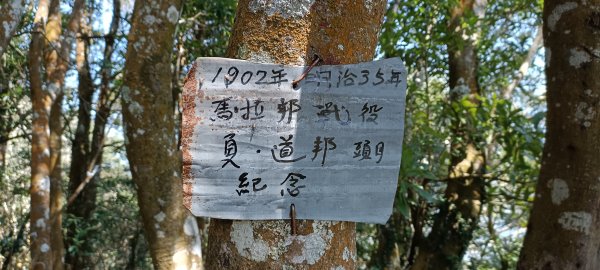 1902年,明治35年
馬拉邦戰役
員·道邦頭目
紀念